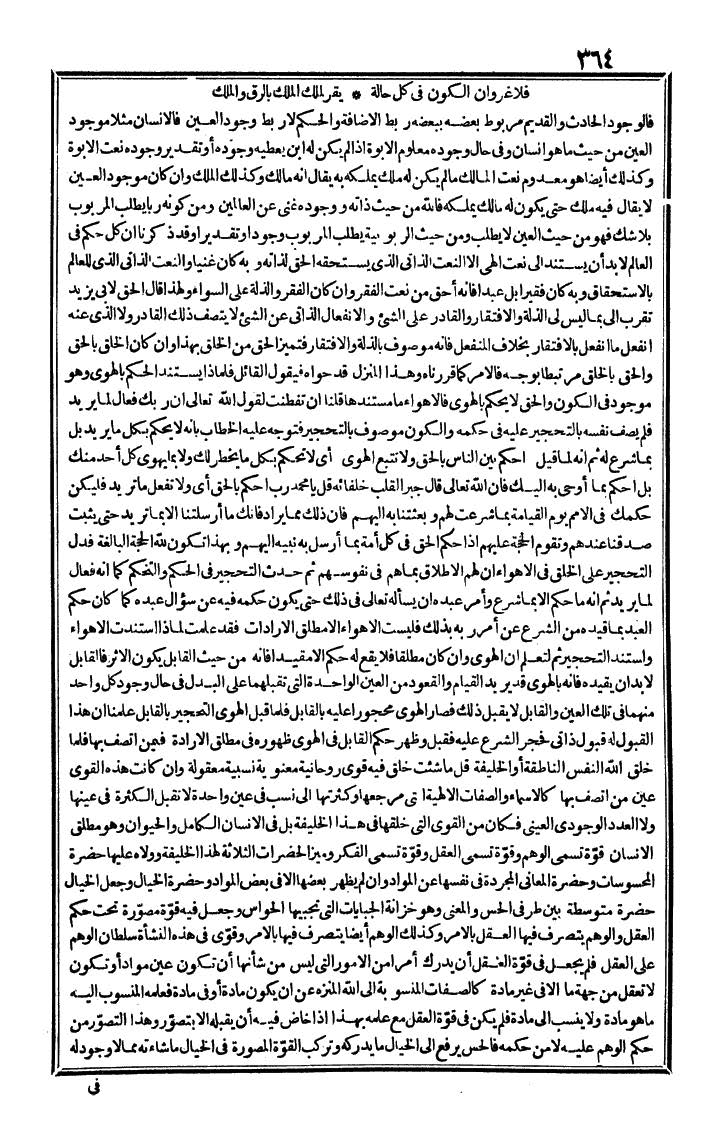 ٣٦٤
فلاغروان الكون فى كل حالة * يقر لملك الملك بالرق والملك
فالوجود الحادث والقديم مربوط بعضه ببعضه ربط الاضافة والحكم لاربط وجود العين فالانسان مثلا موجود
العين من حيث ما هو انسان وفى حال وجوده معلوم الابوة اذا لم يكن له ابن يعطيه وجوده أو تقدير وجوده نعت الابوة
وكذلك أيضا هو معدوم نعت المالك مالم يكن له ملك يملكه به يقال انه مالك وكذلك الملك وان كان موجود العين
لا يقال فيه ملك حتى يكون له مالك يملكه فالله من حيث ذاته ووجوده غنى عن العالمين ومن كونه ربا يطلب المربوب
بلاشك فهو من حيث العين لا يطلب ومن حيث الربوبية يطلب المربوب وجودا وتقديرا وقد ذكرنا ان كل حكم فى
العالم لابد أن يستند الى نعت الهى الا النعت الذاتى الذى يستحقه الحق لذاته وبه كان غنيا والنعت الذاتى الذى للعالم
بالاستحقاق وبه كان فقيرا بل عبدا فانه أحق من نعت الفقر وان كان الفقر والذلة على السواء ولهذا قال الحق لابى يزيد
تقرب الى بما ليس لى الذلة والافتقار والقادر على الشئ والانفعال الذاتى عن الشئ لا يتصف ذلك القادر ولا الذى عنه
انفعل ما انفعل بالافتقار بخلاف المنفعل فانه موصوف بالذلة والافتقار فتميز الحق من الخلق بهذا وان كان الخلق بالحق
والحق بالخلق مرتبطا بوجه فالامر كما قررناه وهذا المنزل قد حواه فيقول القائل فلماذا يستند الحكم بالهوى وهو
موجود فى الكون والحق لا يحكم بالهوى فالاهواء ما مستندها قلنا ان تفطنت لقول الله تعالى ان ربك فعال لما يريد
فلم يصف نفسه بالتحجير عليه فى حكمه والكون موصوف بالتحجير فتوجه عليه الخطاب بانه لا يحكم بكل ما يريد بل
بما شرع له ثم انه لما قيل احكم بين الناس بالحق ولا تتبع الهوى أى لا تحكم بكل ما يخطر لك ولا بما يهوى كل أحد منك
بل احكم بما أوحى به اليك فان الله تعالى قال جبر القلب خلفائه قل يا محمد رب احكم بالحق أى ولا تفعل ما تريد فليكن
حكمك فى الامم يوم القيامة بما شرعت لهم وبعثتنا به اليهم فان ذلك مما يراد فانك ما أرسلتنا الا بما تريد حتى يثبت
صدقنا عندهم وتقوم الحجة عليهم اذا حكم الحق فى كل أمة بما أرسل به نبيه اليهم وبهذا تكون لله الحجة البالغة فدل
التحجير على الخلق فى الاهواء ان لهم الاطلاق بما هم فى نفوسهم ثم حدث التحجير فى الحكم والتحكم كما انه فعال
لما يريد ثم انه ما حكم الا بما شرع وأمر عبده ان يسأله تعالى فى ذلك حتى يكون حكمه فيه عن سؤال عبده كما كان حكم
العبد بما قيده من الشرع عن أمر ربه بذلك فليست الاهواء الا مطلق الارادات فقد علمت لماذا استندت الاهواء
واستند التحجير ثم لتعلم ان الهوى وان كان مطلقا فلا يقع له حكم الا مقيد افانه من حيث القابل يكون الاثر فالقابل
لابد ان يقيده فانه بالهوى قد يريد القيام والقعود من العين الواحدة التى تقبلهما على البدل فى حال وجود كل واحد
منهما فى تلك العين والقابل لا يقبل ذلك فصار الهوى محجورا عليه بالقابل فلما قبل الهوى التحجير بالقابل علمنا ان هذا
القبول له قبول ذاتى فحجر الشرع عليه فقبل وظهر حكم القابل فى الهوى ظهوره فى مطلق الارادة فيمن اتصف بها فلما
خلق الله النفس الناطقة أو الخليفة قل ما شئت خلق فيه قوى روحانية معنوية نسبية معقولة وان كانت هذه القوى
عين من اتصف بها كالاسماء والصفات الالهية التى مرجعها وكثرتها الى نسب فى عين واحدة لا تقبل الكثرة فى عينها
ولا العدد الوجودى العينى فكان من القوى التى خلقها فى هذا الخليفة بل فى الانسان الكامل والحيوان وهو مطلق
الانسان قوة تسمى الوهم وقوة تسمى العقل وقوة تسمى الفكر وميز الحضرات الثلاثة لهذا الخليفة وولاه عليها حضرة
المحسوسات وحضرة المعانى المجردة فى نفسها عن المواد وان لم يظهر بعضها الا فى بعض المواد وحضرة الخيال وجعل الخيال
حضرة متوسطة بين طرفى الحس والمعنى وهو خزانة الجبايات التى تجبيها الحواس وجعل فيه قوة مصورة تحت حكم
العقل والوهم يتصرف فيها العقل بالامر وكذلك الوهم أيضا يتصرف فيها بالامر وقوى فى هذه النشأة سلطان الوهم
على العقل فلم يجعل فى قوة العقل أن يدرك أمرا من الامور التى ليس من شأنها أن تكون عين مواد أو تكون
لا تعقل من جهة ما الا فى غير مادة كالصفات المنسوبة الى الله المنزه عن ان يكون مادة أو فى مادة فعلمه المنسوب اليه
ما هو مادة ولا ينسب الى مادة فلم يكن فى قوة العقل مع علمه بهذا اذا خاض فيه أن يقبله الا بتصور وهذا التصور من
حكم الوهم عليه لا من حكمه فالحس يرفع الى الخيال ما يدركه وتركب القوة المصورة فى الخيال ما شاءته مما لا وجود له
فى